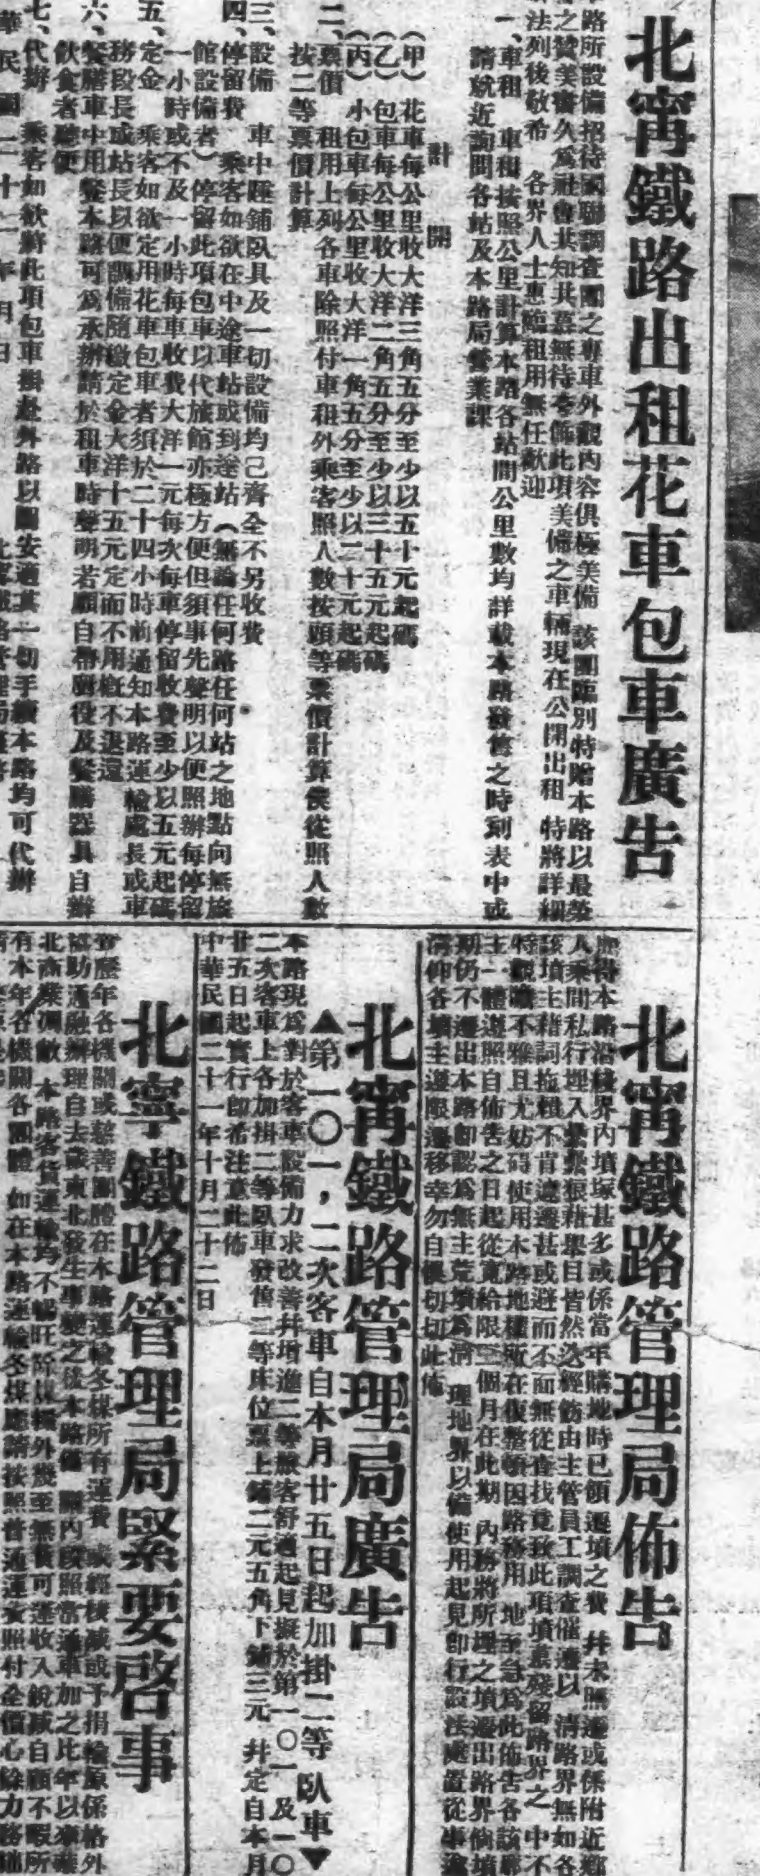 北甯鐵路出租花車包車廣告
路所設備招待國聯調查團之專車外觀內容俱極美備 該團臨別特贈本路以最榮
之贊美審久為社會共知共慕無待夸飾此項美備之車輛現在公開出租 特將詳細
法列後敬希 各界人士惠臨租用無任歡迎
一、車租 車租按照公里計算本路各站間公里數均詳載本路發售之時刻表中或
請就近詢問各站及本路局營業課
計開
（甲）花車每公里收大洋三角五分至少以五十元起碼
（乙）包車每公里收大洋二角五分至少以三十五元起碼
（丙）小包車每公里收大洋一角五分至少以二十元起碼
二、票價 租用上列各車除照付車租外乘客照人數按頭等票價計算僕從照人數
按二等票價計算
三、設備 車中睡鋪臥具及一切設備均已齊全不另收費
四、停留費 乘客如欲在中途車站或到達站（無論任何路任何站之地點向無旅
館設備者）停留此項包車以代旅館亦極方便但須事先聲明以便照辦每停留
一小時或不及一小時每車收費大洋一元每次每車停留收費至少以五元起碼
五、定金 乘客如欲定用花車包車者須於二十四小時前通知本路運輸處長或車
務段長或站長以便調備隨繳定金大洋十五元定而不用概不退還
六、餐膳車中用餐本路可為承辦請於租車時聲明若願自帶廚役及餐膳器具自辦
飲食者聽便
七、代辦 乘客如欲將此項包車掛赴外路以圖安適其一切手續本路均可代辦
華民國二十一年 月 日
北甯鐵路管理局佈告
照得本路沿綫界內墳塚甚多或係當年購地時已領遷墳之費 幷未照遷或係附近鄉
人乘間私行埋入纍纍狼藉舉目皆然迭經飭由主管員工調查催遷以 清路界無如各
該墳主藉詞拖賴不肯遽遷甚或避而不面無從查找竟致此項墳墓殘留路界之 中不
特觀瞻不雅且尤妨碍使用本路地權所在復整頓因路務用 地至急為此佈告各該墳
主一體遵照自佈告之日起從寬給限三個月在此期 內務將所埋之墳遷出路界倘墳
期仍不遷出本路卽認為無主荒墳為清 理地界以備使用起見卽行設法處置從事遷
清仰各墳主遵限遷移幸勿自悞切切此佈
北甯鐵路管理局廣告
▲第一〇一，二次客車自本月廿五日起加掛二等臥車▼
本路現為對於客車設備力求改善幷增進二等旅客舒適起見擬於第一〇一及一〇
二次客車上各加掛二等臥車發售二等床位票上鋪二元五角下鋪三元 幷定自本月
廿五日起實行卽希注意此佈
中華民國二十一年十月二十二日
北寧鐵路管理局緊要啓事
歷年各機關或慈善團體在本路運輸冬煤所有運費 或經核減或予捐輸原係格外
協助通融辦理自去歲東北發生事變之後本路僅 關內段照常通車加之比年以來華
北商業凋敝 本路客貨運輸均不暢旺除煤糧外幾至無貨可運收入銳減自顧不暇所
有本年各機關各團體 如在本路運輸冬煤應請按照普通運費照付全價心餘力絀